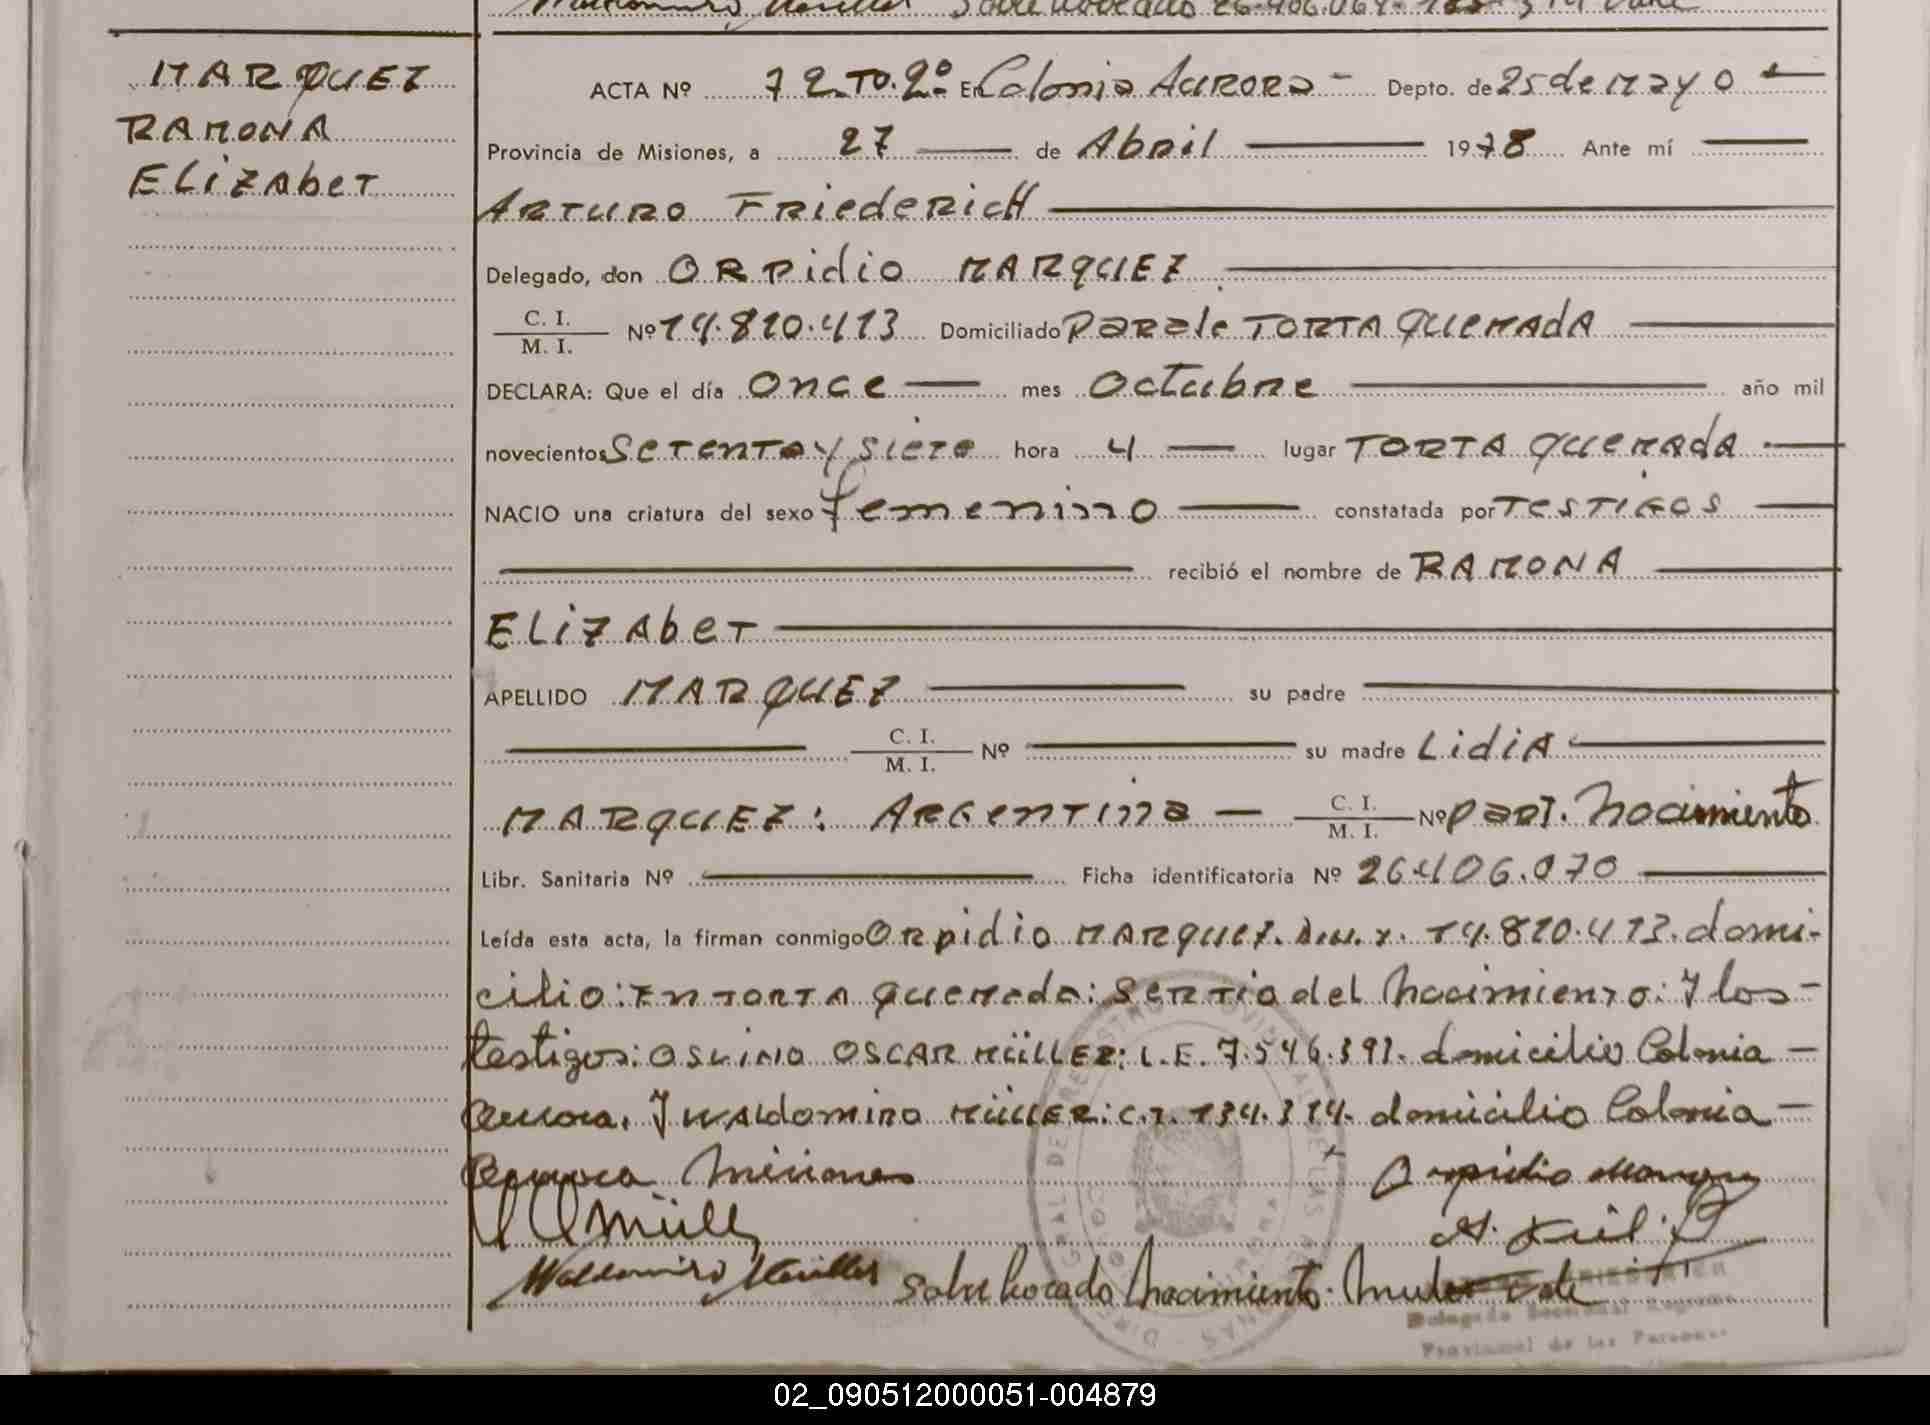 MARQUEZ
RAMONA
ELizAbeT
ACTA Nº 72 TO. 2º En Colonia Aurora - Depto. de 25 de Mayo
Provincia de Misiones, a 27 de Abril 1978 Ante mí
Arturo Friederich
Delegado, don Orpidio MARQUEZ
C. I. / M. I. Nº 14.820.413 Domiciliado Paraje TORTA QUEMADA
DECLARA: Que el día once mes Octubre año mil
novecientos Setenta y siete hora 4 lugar TORTA QUEMADA
NACIO una criatura del sexo femenino constatada por Testigos
recibió el nombre de RAMONA
ELizAbeT
APELLIDO MARQUEZ su padre
C. I. / M. I. Nº su madre LidiA
MARQUEZ: Argentina - C. I. / M. I. Nº part. Nacimiento
Libr. Sanitaria Nº Ficha identificatoria Nº 26.406.070
Leída esta acta, la firman conmigo Orpidio Marquez. 14.820.413. domi-
cilio: En TORTA Quemada: del Nacimiento: Y los -
testigos: OSCAR Müller: L.E. 7.546.391. domicilio Colonia -
Aurora. Y WALdomiro Müller: C.I. 134.314. domicilio Colonia -
Aurora Misiones
Orpidio
Müll
Waldomiro Müller Sobre borado Nacimiento. Vale
DIRECCION GRAL DE REGISTRO PROVINCIAL DE LAS PERSONAS
Delegado Seccional Registro
Provincial de las Personas
02_090512000051-004879